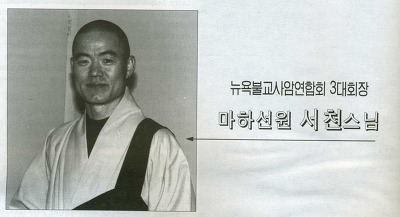 뉴욕불교사암연합회 3대회장
마하선원 서천스님